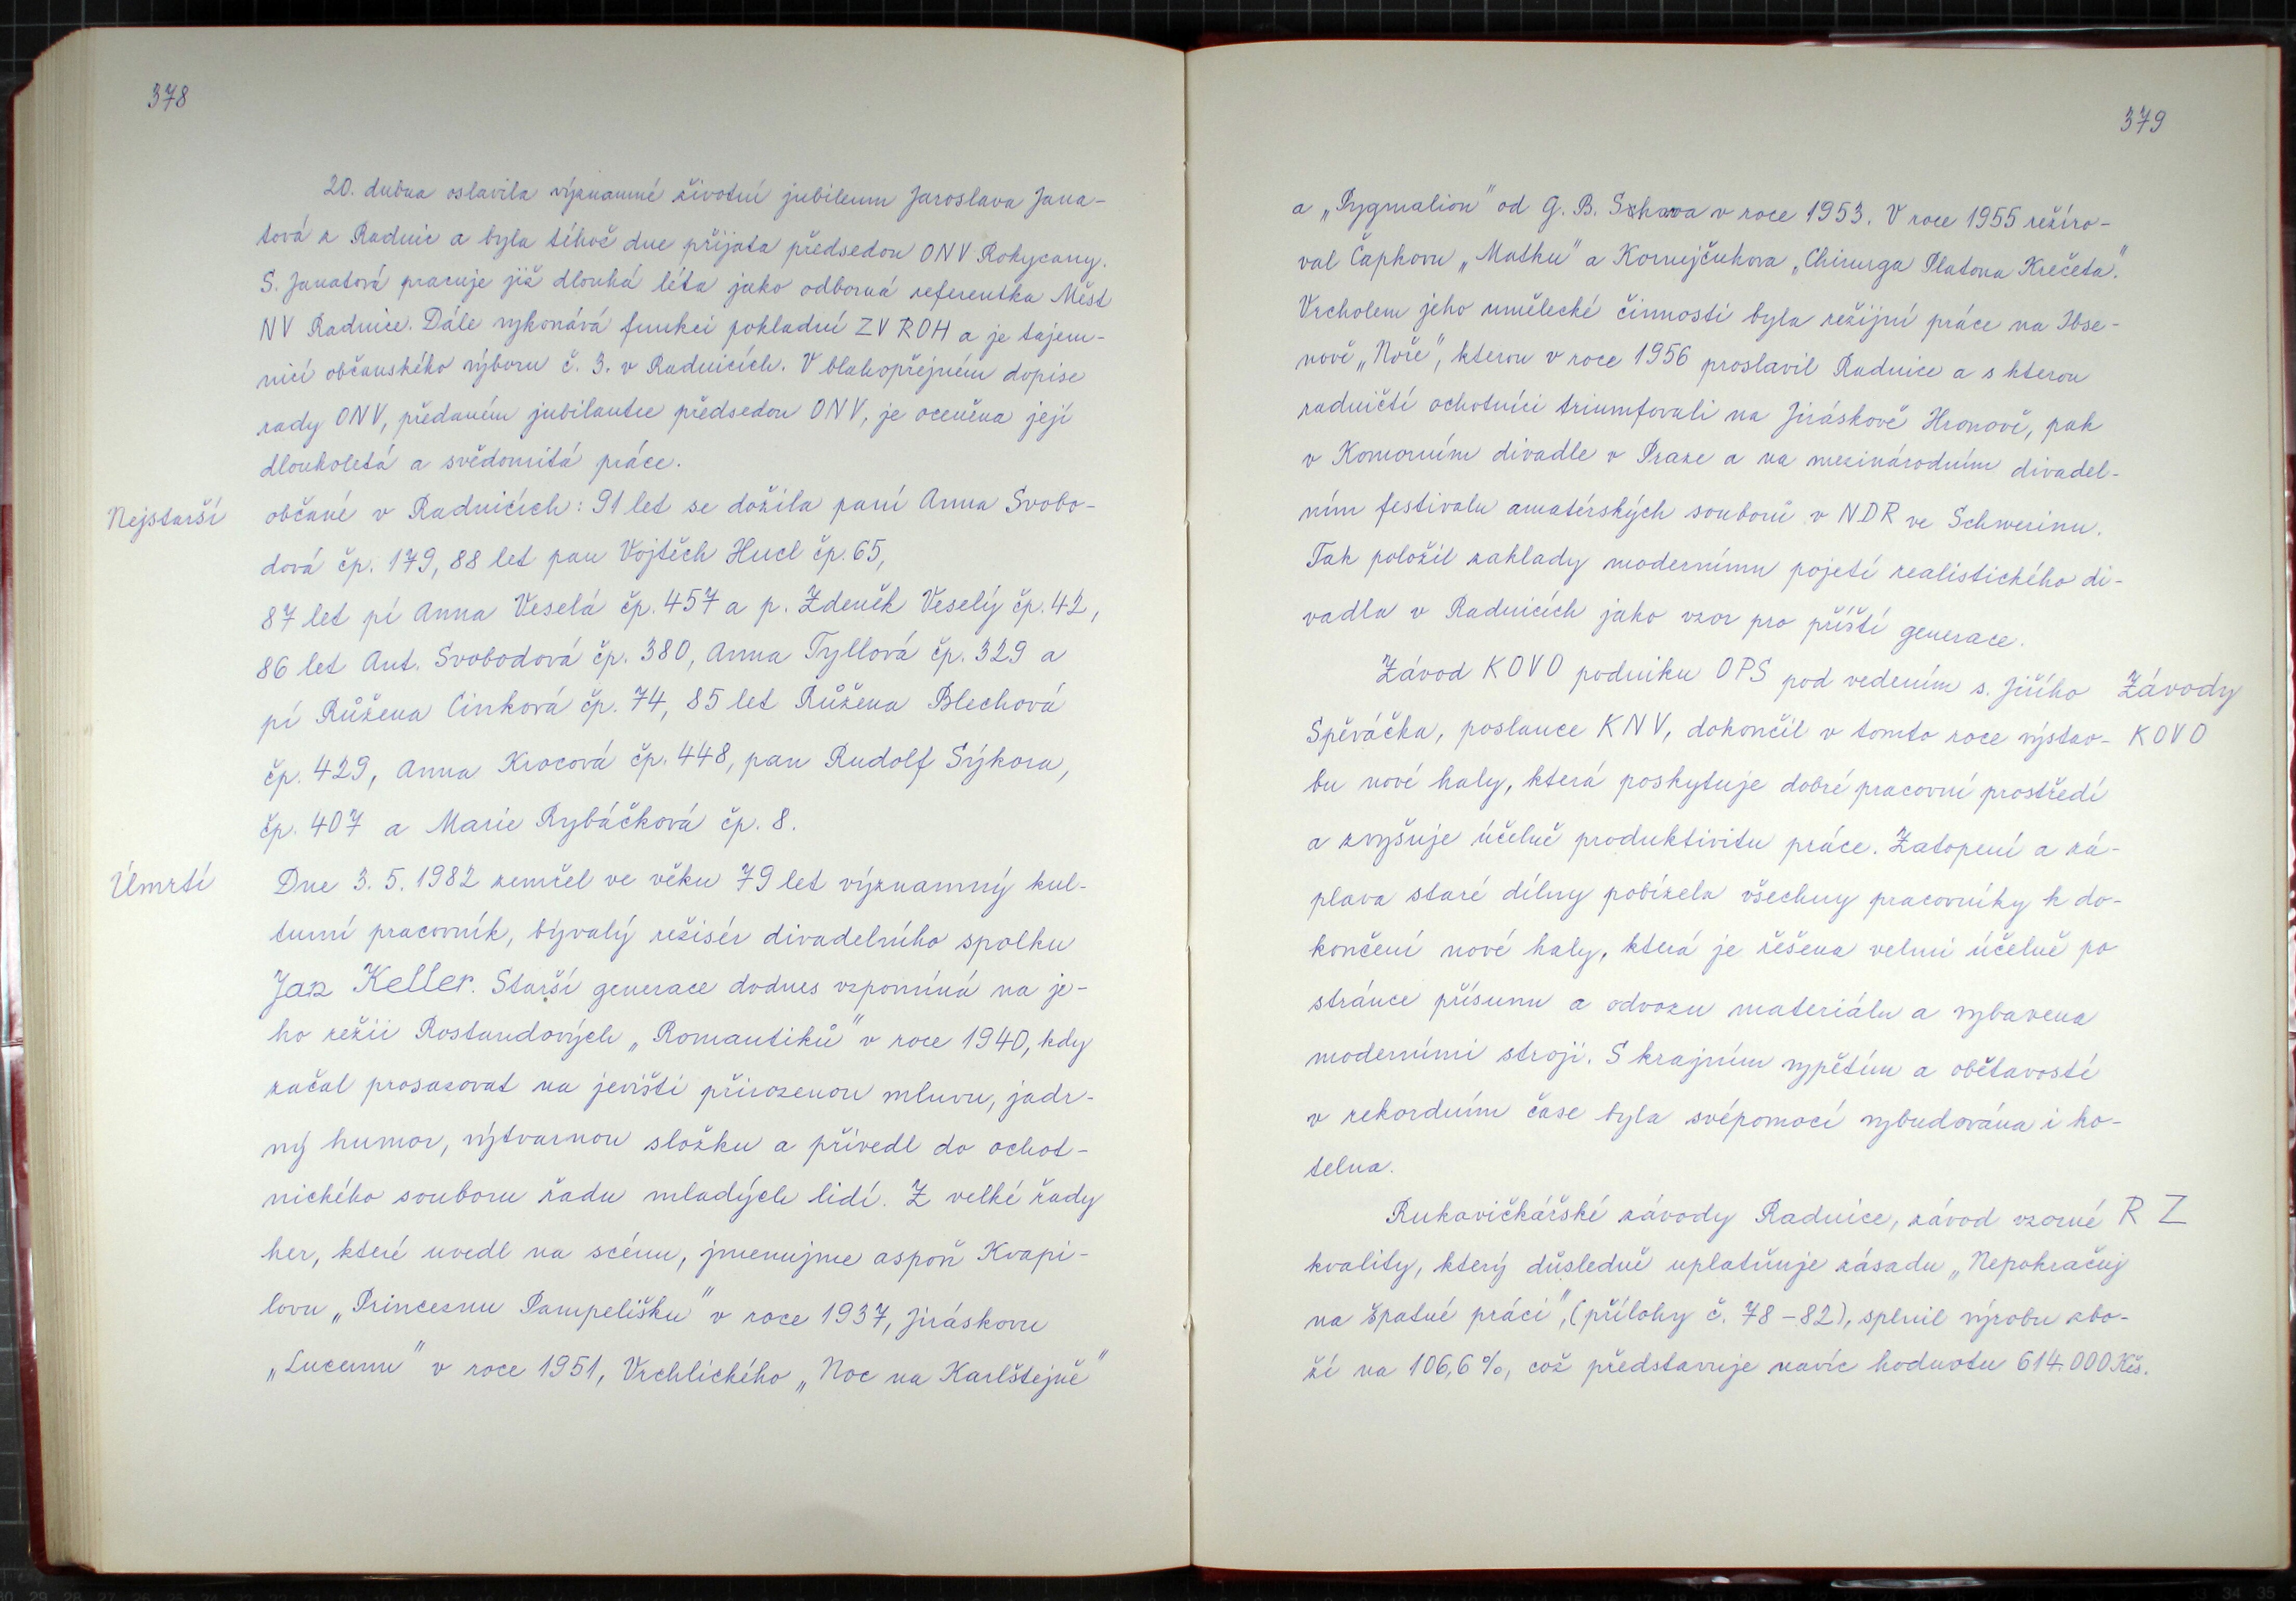 378
20. dubna oslavila významné životní jubileum Jaroslava Jana-
tová z Radnic a byla téhož dne přijata předsedou ONV Rokycany.
S. Janatová pracuje již dlouhá léta jako odborná referentka Měst
NV Radnice. Dále vykonává funkci pokladní ZV ROH a je tajem-
nicí občanského výboru č. 3. v Radnicích. V blahopřejném dopise
rady ONV, předaném jubilantce předsedou ONV, je oceněna její
dlouholetá a svědomitá práce.
Nejstarší občané v Radnicích: 91 let se dožila paní Anna Svobo-
dová čp. 179, 88 let pan Vojtěch Hucl čp. 65,
87 let pí Anna Veselá čp. 457 a p. Zdeněk Veselý čp. 42,
86 let Ant. Svobodová čp. 380, Anna Tyllová čp. 329 a
pí Růžena Cinková čp. 74, 85 let Růžena Blechová
čp. 429, Anna Krocová čp. 448, pan Rudolf Sýkora,
čp. 407 a Marie Rybáčková čp. 8.
Úmrtí Dne 3. 5. 1982 zemřel ve věku 79 let významný kul-
turní pracovník, bývalý režisér divadelního spolku
Jan Keller. Starší generace dodnes vzpomíná na je-
ho režii Rostandových „Romantiků" v roce 1940, kdy
začal prosazovat na jevišti přirozenou mluvu, jadr-
ný humor, výtvarnou složku a přivedl do ochot-
nického souboru řadu mladých lidí. Z velké řady
her, které uvedl na scénu, jmenujme aspoň Kvapi-
lovu „Princeznu Pampelišku" v roce 1937, Jiráskovu
„Lucernu" v roce 1951, Vrchlického „Noc na Karlštejně"
379
a „Pygmalion" od G. B. Schawa v roce 1953. V roce 1955 režíro-
val Čapkovu „Matku" a Kornejčukova „Chirurga Platona Krečeta".
Vrcholem jeho umělecké činnosti byla režijní práce na Ibse-
nově „Noře", kterou v roce 1956 proslavil Radnice a s kterou
radničtí ochotníci triumfovali na Jiráskově Hronově, pak
v Komorním divadle v Praze a na mezinárodním divadel-
ním festivalu amatérských souborů v NDR ve Schwerinu.
Tak položil zaklady modernímu pojetí realistického di-
vadla v Radnicích jako vzor pro příští generace.
Závod KOVO podniku OPS pod vedením s. Jiřího Závody
Spěváčka, poslance KNV, dokončil v tomto roce výstav- KOVO
bu nové haly, která poskytuje dobré pracovní prostředí
a zvyšuje účelně produktivitu práce. Zatopení a zá-
plava staré dílny pobízela všechny pracovníky k do-
končení nové haly, která je řešena velmi účelně po
stránce přísunu a odvozu materiálu a vybavena
moderními stroji. S krajním vypětím a obětavostí
v rekordním čase byla svépomocí vybudována i ko-
telna.
Rukavičkářské závody Radnice, závod vzorné R Z
kvality, který důsledně uplatňuje zásadu „Nepokračuj
na špatné práci", (přílohy č. 78 – 82), splnil výrobu zbo-
ží na 106,6 %, což představuje navíc hodnotu 614.000 Kčs.